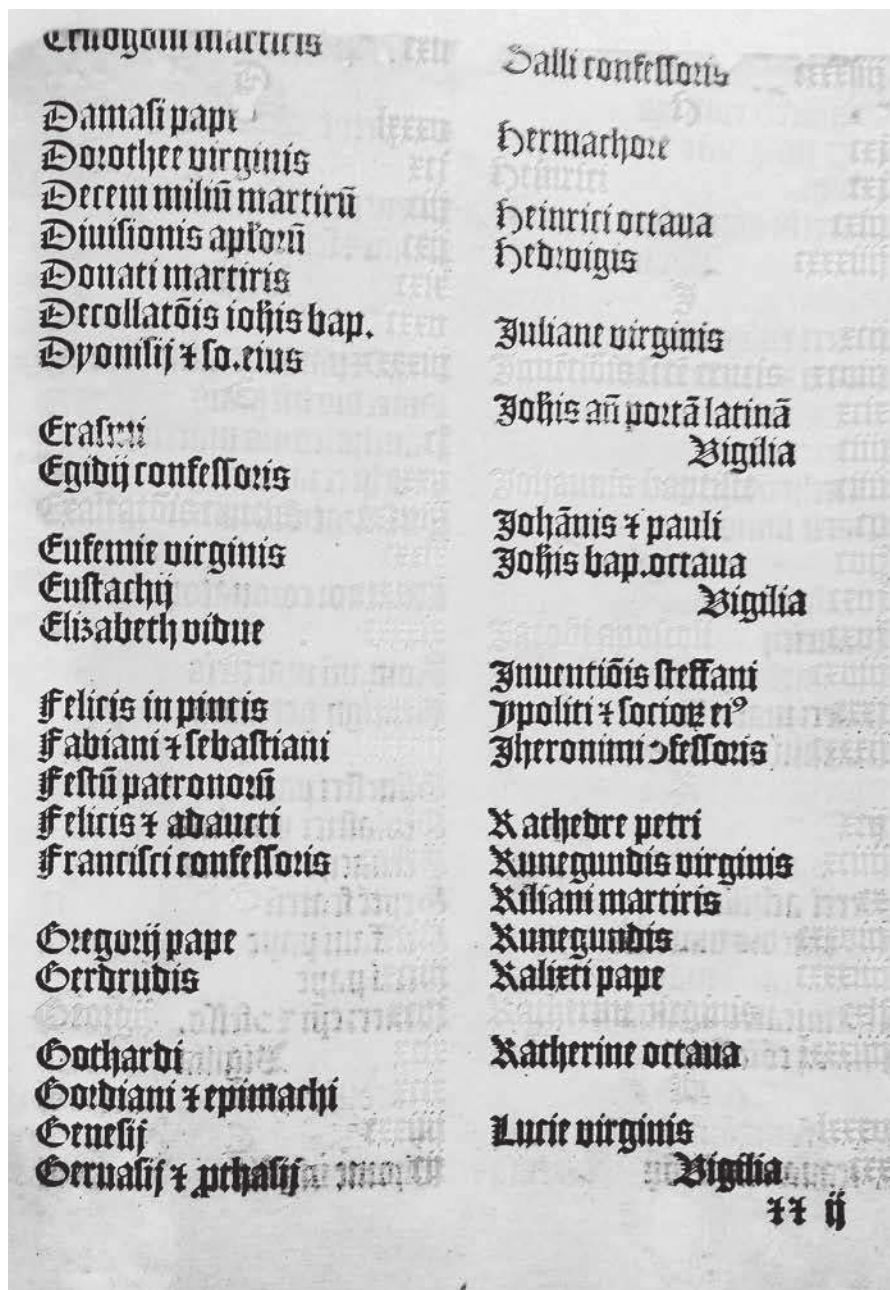 Crisogoni martiris
Damasi pape
Dorothee uirginis
Decem miliū martirū
Diuisionis aplorū
Donati martiris
Decollatōis ioħis bap.
Dyonisij ⁊ so.eius
Erasmi
Egidij confessoris
Eufemie uirginis
Eustachij
Elizabeth uidue
Felicis in pincis
Fabiani ⁊ sebastiani
Festū patronorū
Felicis ⁊ adaucti
Francisci confessoris
Gregorij pape
Gerdrudis
Gothardi
Gordiani ⁊ epimachi
Genesij
Geruasij ⁊ ꝓthasij
Galli confessoris
Hermachore
Heinrici octaua
Hedwigis
Juliane uirginis
Joħis añ portā latinā
Vigilia
Johānis ⁊ pauli
Joħis bap.octaua
Vigilia
Inuentiōis steffani
Ypoliti ⁊ socioꝝ eiꝰ
Jheronimi ↄfessoris
Kathedre petri
Kunegundis uirginis
Kiliani martiris
Kunegundis
Kalixti pape
Katherine octaua
Lucie uirginis
Vigilia
⁊⁊ ij